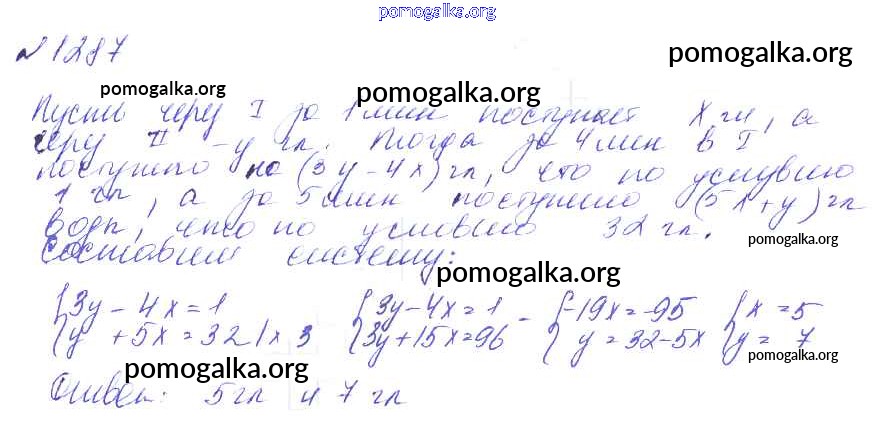 pomogalka.org
№ 1287
pomogalka.org
pomogalka.org
pomogalka.org
Пусть через I за 1 мин поступает x гл, а
через II - y гл. Тогда за 4 мин в I
поступило на (3y - 4x) гл, что по условию
1 гл, а за 5 мин поступило (5x + y) гл
воды, что по условию 32 гл.
pomogalka.org
Составим систему:
pomogalka.org
{3y - 4x = 1 {3y - 4x = 1 - {-19x = -95 {x = 5
{y + 5x = 32 | x 3 {3y + 15x = 96 {y = 32 - 5x {y = 7
pomogalka.org
pomogalka.org
Ответ: 5 гл и 7 гл